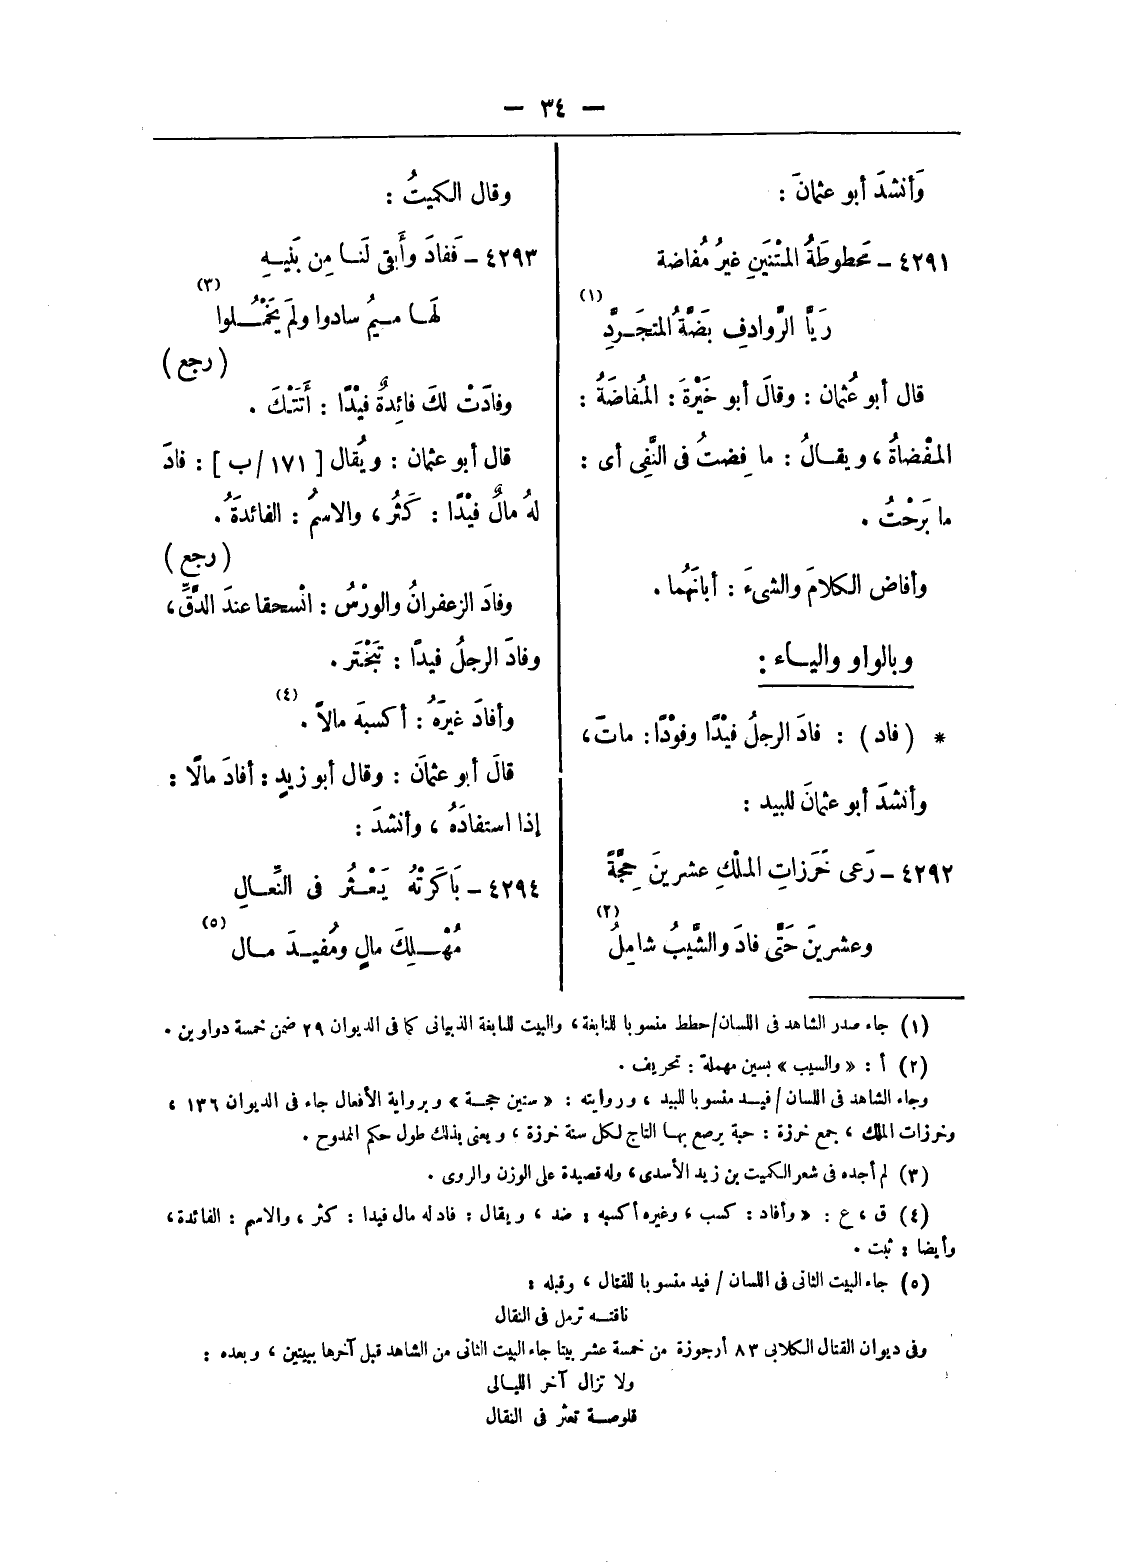 — ٣٤ —
وَأنشدَ أبو عثمانَ :
٤٢٩١ – مَحطوطَةُ المتْنَينِ غيرُ مُفاضة
رَيَّا الرَّوادفِ بَضَّةُ المتجَــرَّدِ (١)
قال أبو عُثمان : وقالَ أبو خَيْرةَ : المُفاضَةُ :
المفْضاةُ ، ويقــالُ : ما فِضتُ فى النَّفِى أى :
ما بَرَحْتُ .
وأفاض الكلامَ والشىءَ : أبانَهُما .
وبالواو واليــاء :
* ( فاد ) : فادَ الرجلُ فيْدًا وفوْدًا : ماتَ ،
وأنشدَ أبو عثمانَ للبيد :
٤٢٩٢ – رَعى خَرَزاتِ الملْكِ عشرينَ حِجَّةً
وعشرينَ حَتَّى فادَ والشَّيبُ شامِلُ (٢)
وقال الكميتُ :
٤٢٩٣ – فَفادَ وأَبقى لَنــا مِن بَنيــهِ
لهَــا مــيمُ سادوا ولمَ يَخْمُــلوا (٣)
( رجع )
وفادَتْ لكَ فائِدةٌ فيْدًا : أَتَتْكَ .
قال أبو عثمان : ويُقال [ ١٧١ / ب ] : فادَ
لهُ مالٌ فيْدًا : كَثُر ، والاسمُ : الفائدَةُ .
( رجع )
وفادَ الزعفرانُ والورْسُ : انْسحقا عندَ الدَّقِّ ،
وفادَ الرجلُ فيدًا : تَبَخْتَر .
وأفادَ غيرَهُ : أكسبَه مالاً . (٤)
قالَ أبو عثمانَ : وقال أبو زيدٍ : أفادَ مالًا :
إذا استفادَهُ ، وأنشدَ :
٤٢٩٤ – بَاكَرْتُهُ يَعْــثُر فى النَّعَــالِ
مُهْــلِكَ مالٍ ومُفيــدَ مــال (٥)
(١) جاء صدر الشاهد فى اللسان/حطط منسوبا للنابغة ، والبيت للنابغة الذبيانى كما فى الديوان ٢٩ ضمن خمسة دواوين .
(٢) أ : « والسيب » بسين مهملة : تحريف .
وجاء الشاهد فى اللسان / فيــد منسوبا للبيد ، وروايته : « ستين حجــة » وبرواية الأفعال جاء فى الديوان ١٣٦ ،
وخرزات الملك ، جمع خرزة : حبة يرصع بهــا التاج لكل سنة خرزة ، ويعنى بذلك طول حكم الممدوح .
(٣) لم أجده فى شعر الكميت بن زيد الأسدى ، وله قصيدة على الوزن والروى .
(٤) ق ، ع : « وأفاد : كسب ، وغيره أكسبه : ضد ، ويقال : فاد له مال فيدا : كثر ، والاسم : الفائدة ،
وأيضا : ثبت .
(٥) جاء البيت الثانى فى اللسان / فيد منسوبا للقتال ، وقبله :
ناقتــه ترمل فى النقال
وفى ديوان القتال الكلابى ٨٣ أرجوزة من خمسة عشر بيتا جاء البيت الثانى من الشاهد قبل آخرها ببيتين ، وبعده :
ولا تزال آخر الليــالى
قلوصــة تعثر فى النقال